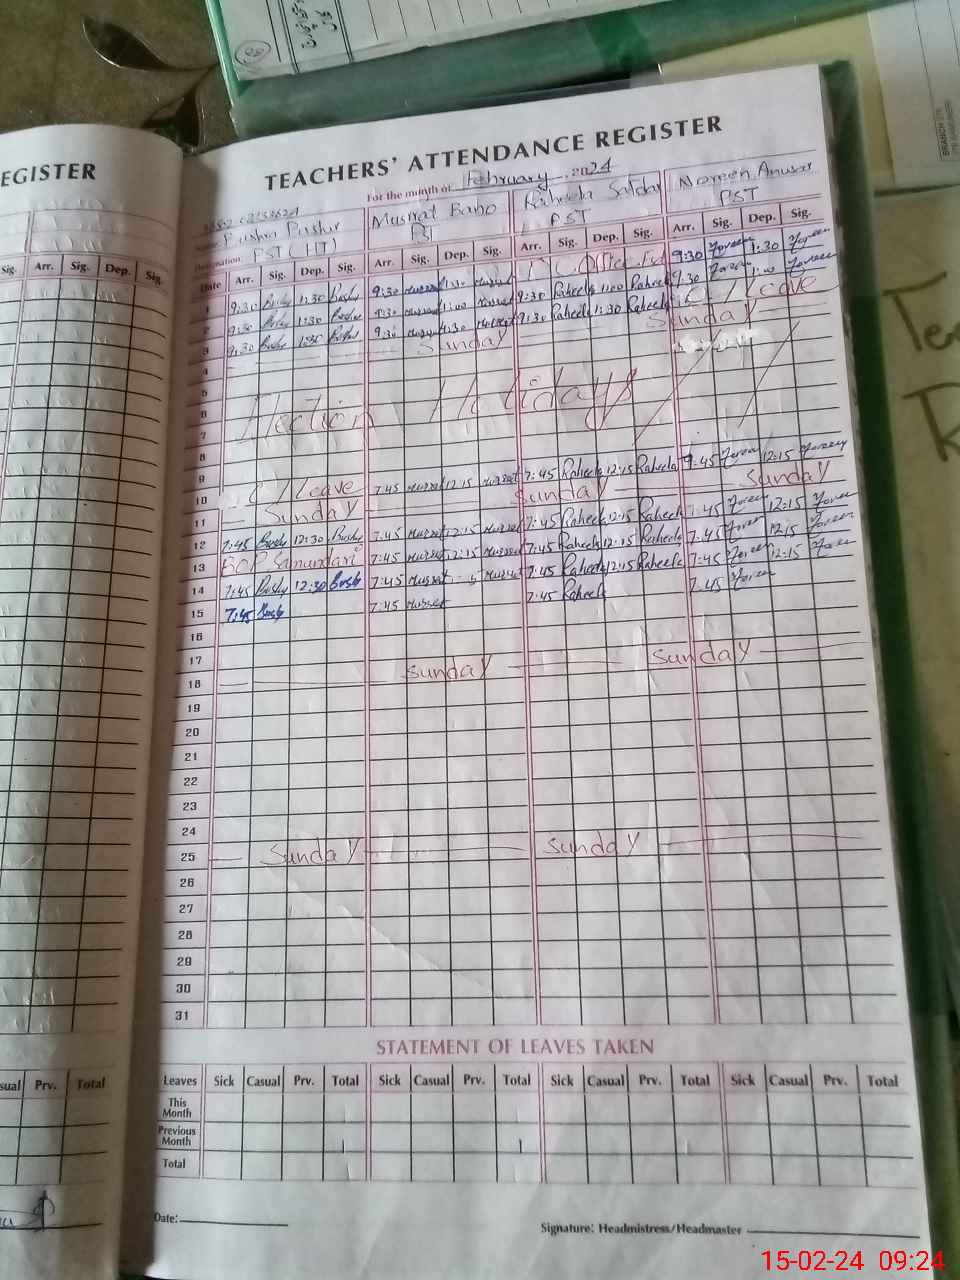 EGISTER
TEACHERS' ATTENDANCE REGISTER
For the month of February 2024
Bushra Bashir Musrrat Bano Raheela Safdar Noreen Anwar
Designation PST (HT) PST PST
Sig. Arr. Sig. Dep. Sig.
Date Arr. Sig. Dep. Sig. Arr. Sig. Dep. Sig. Arr. Sig. Dep. Sig. Arr. Sig. Dep. Sig.
1 9:30 Bushr 1:30 Bushr 9:30 Musrrat 1:30 Musrrat 9:30 Noreen 1:30 Noreen
2 9:30 Bushr 1:30 Bushr 9:30 Musrrat 1:00 Musrrat 9:30 Raheela 1:00 Raheela 9:30 Noreen 1:00 Noreen
3 9:30 Bushr 1:30 Bushr 9:30 Musrrat Musrrat 9:30 Raheela 1:30 Raheela C/Leave
4 Sunday Sunday
5
6 Election Holidays
7
8
9 7:45 Musrrat 12:15 Musrrat 7:45 Raheela 12:15 Raheela 9:45 Noreen 12:15 Noreen
10 C/Leave
11 Sunday Sunday Sunday
12 7:45 Bushr 12:30 Bushr 7:45 Musrrat 12:15 Musrrat 7:45 Raheela 12:15 Raheela 7:45 Noreen 12:15 Noreen
13 BOP Samundari 7:45 Musrrat 12:15 Musrrat 7:45 Raheela 12:15 Raheela 7:45 Noreen 12:15 Noreen
14 7:45 Bushr 12:30 Bushr 7:45 Musrrat Musrrat 7:45 Raheela 12:15 Raheela 7:45 Noreen 12:15 Noreen
15 7:45 Bushr 7:45 Musrrat 7:45 Raheela 7:45 Noreen
16
17
18 Sunday Sunday
19
20
21
22
23
24
25 Sunday Sunday
26
27
28
29
30
31
STATEMENT OF LEAVES TAKEN
Prv. Total
Leaves Sick Casual Prv. Total Sick Casual Prv. Total Sick Casual Prv. Total Sick Casual Prv. Total
This Month
Previous Month
Total
Date:
Signature: Headmistress/Headmaster
15-02-24 09:24